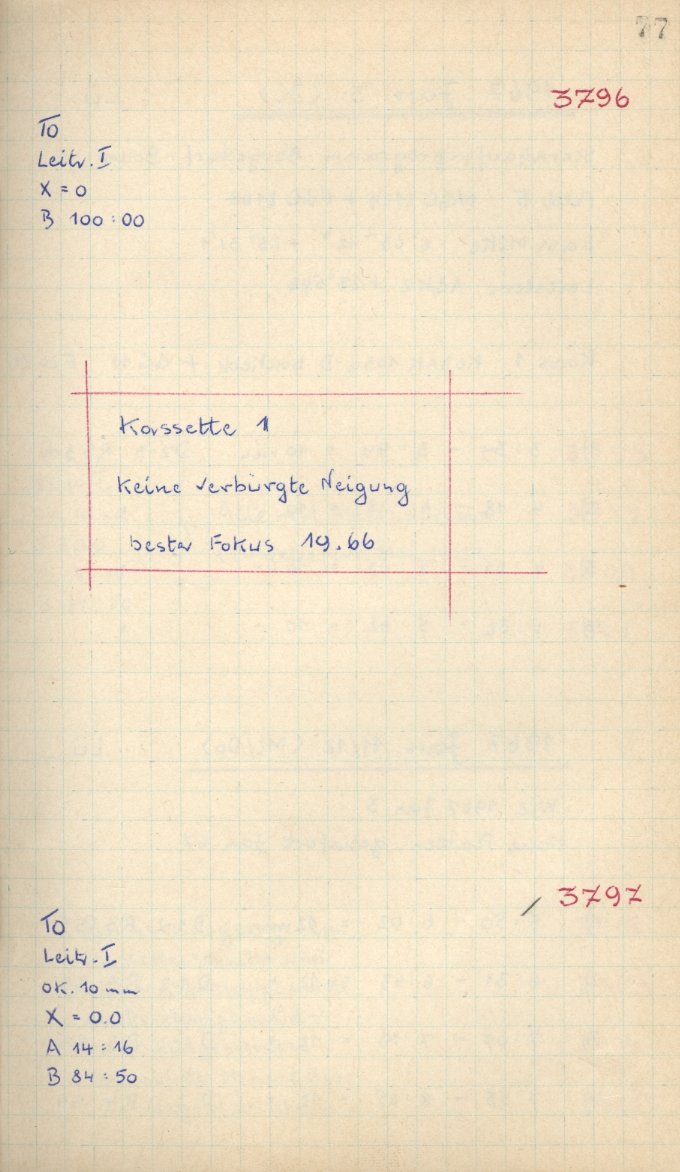 77
3796
TO
Leitr. I
X = 0
B 100 : 00
Kassette 1
keine verbürgte Neigung
bester Fokus 19.66
3797
TO
Leitr. I
OK. 10 mm
X = 0.0
A 14 : 16
B 84 : 50